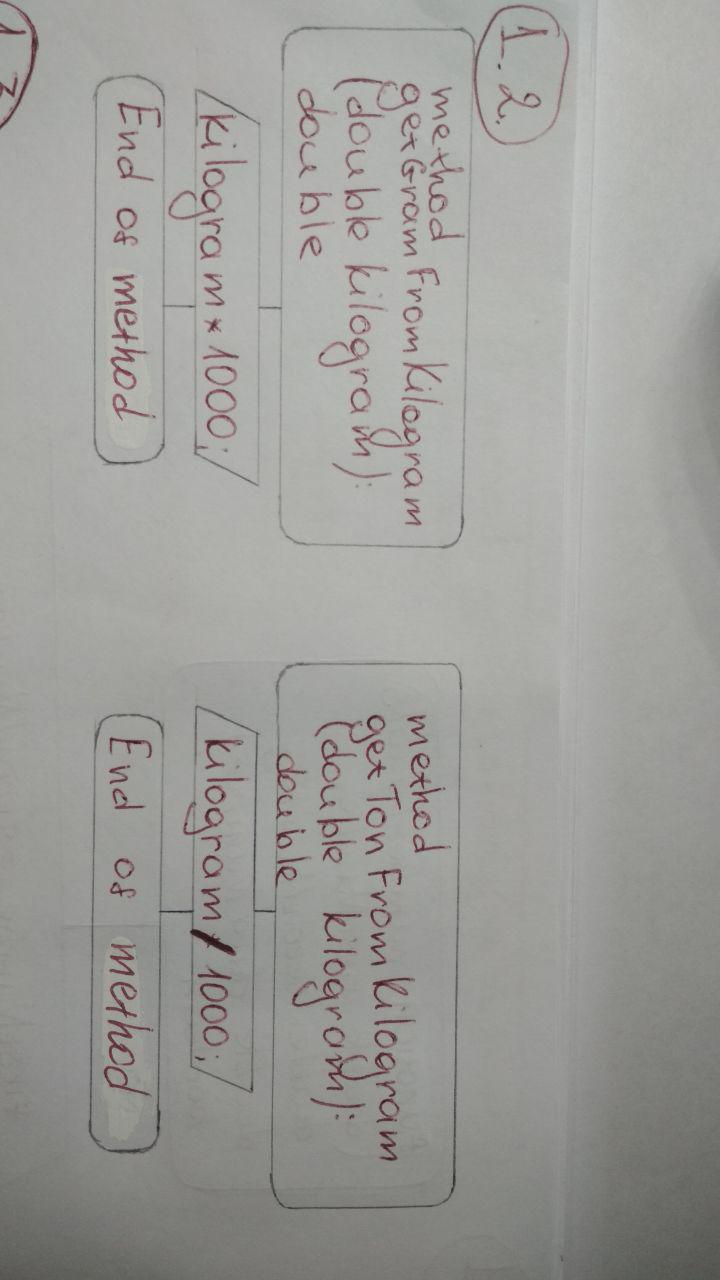 1.2.
method
getGramFromKilogram
(double kilogram):
double
kilogram * 1000;
End of method
method
getTonFromKilogram
(double kilogram):
double
kilogram / 1000;
End of method
1.3